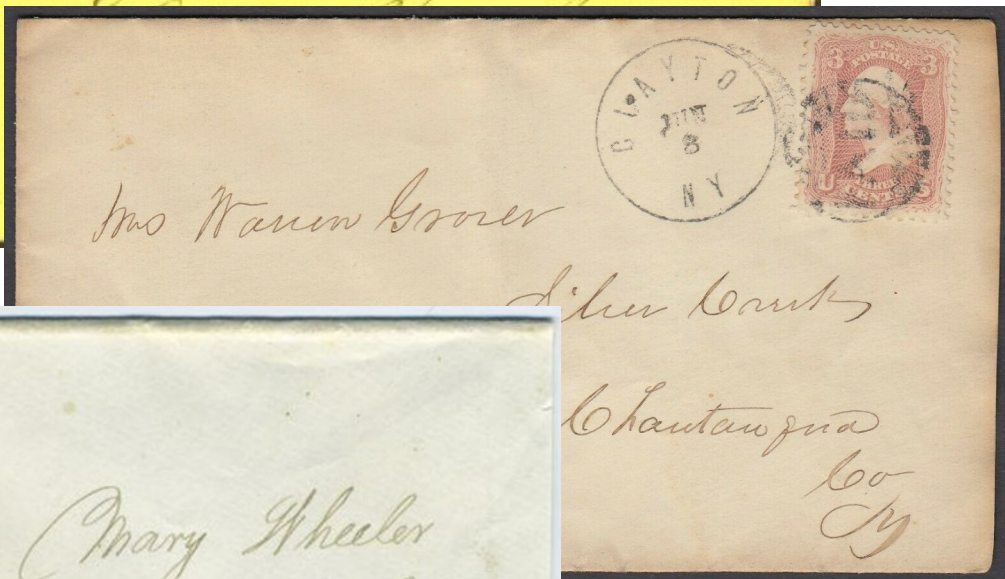 CLAYTON
JUN
8
NY
3 U.S. 3
POSTAGE
CENTS
Mrs Warren Grover
Silver Creek
Chautauqua
Co
NY
Mary Wheeler